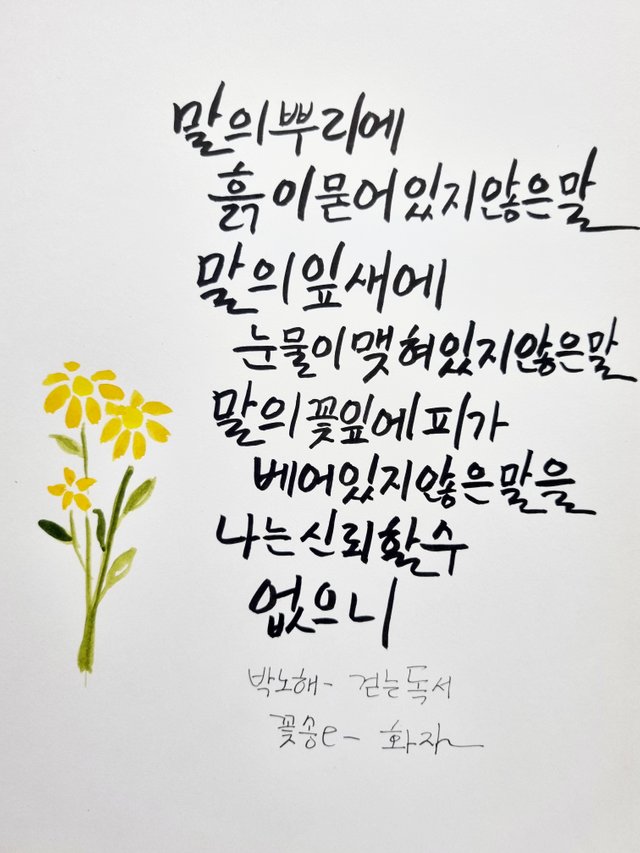 말의 뿌리에
흙이 묻어있지 않은 말
말의 잎새에
눈물이 맺혀있지 않은 말
말의 꽃잎에 피가
베어있지 않은 말을
나는 신뢰할 수
없으니
박노해- 걷는독서
꽃송e- 화자